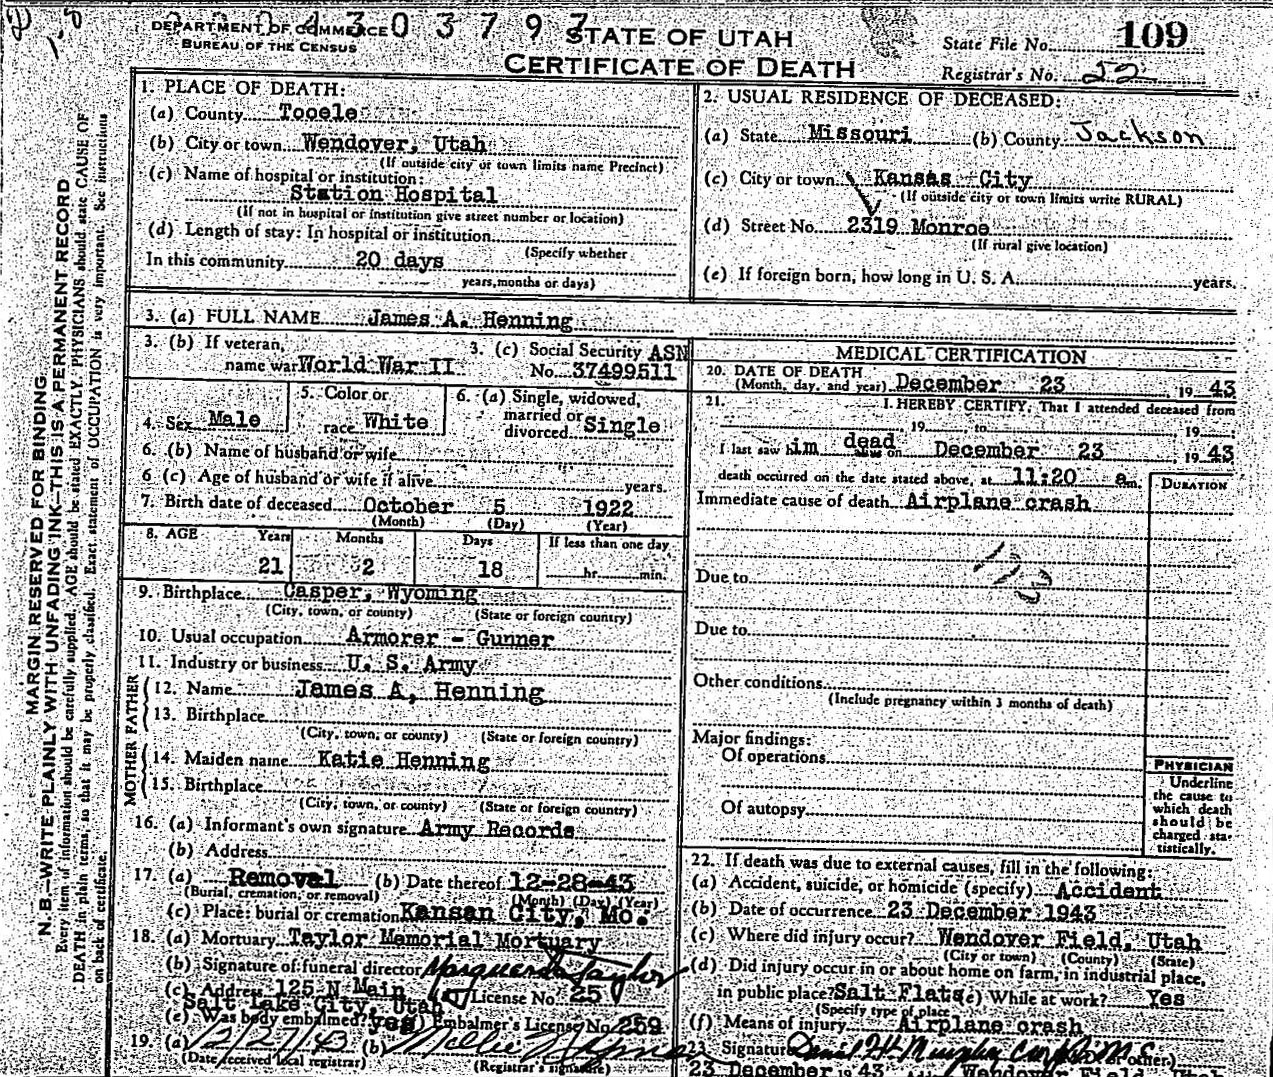 DEPARTMENT OF COMMERCE
BUREAU OF THE CENSUS
303797
STATE OF UTAH
CERTIFICATE OF DEATH
State File No. 109
Registrar's No. 22
MARGIN RESERVED FOR BINDING
N. B.—WRITE PLAINLY WITH UNFADING INK—THIS IS A PERMANENT RECORD
Every item of information should be carefully supplied. AGE should be stated EXACTLY. PHYSICIANS should state CAUSE OF
DEATH in plain terms, so that it may be properly classified. Exact statement of OCCUPATION is very important. See instructions
on back of certificate.
1. PLACE OF DEATH:
(a) County Tooele
(b) City or town Wendover, Utah
(If outside city or town limits name Precinct)
(c) Name of hospital or institution:
Station Hospital
(If not in hospital or institution give street number or location)
(d) Length of stay: In hospital or institution
(Specify whether
In this community 20 days
years, months or days)
2. USUAL RESIDENCE OF DECEASED:
(a) State Missouri (b) County Jackson
(c) City or town Kansas City
(If outside city or town limits write RURAL)
(d) Street No. 2319 Monroe
(If rural give location)
(e) If foreign born, how long in U. S. A. years.
3. (a) FULL NAME James A. Henning
3. (b) If veteran, name war World War II
3. (c) Social Security ASN
No. 37499511
4. Sex Male
5. Color or race White
6. (a) Single, widowed, married or divorced Single
6. (b) Name of husband or wife
6 (c) Age of husband or wife if alive years.
7. Birth date of deceased October 5 1922
(Month) (Day) (Year)
8. AGE Years Months Days If less than one day
21 2 18 hr. min.
9. Birthplace Casper, Wyoming
(City, town, or county) (State or foreign country)
10. Usual occupation Armorer - Gunner
11. Industry or business U. S. Army
FATHER
12. Name James A. Henning
13. Birthplace
(City, town, or county) (State or foreign country)
MOTHER
14. Maiden name Katie Henning
15. Birthplace
(City, town, or county) (State or foreign country)
16. (a) Informant's own signature Army Records
(b) Address
17. (a) Removal (b) Date thereof 12-28-43
(Burial, cremation, or removal) (Month) (Day) (Year)
(c) Place: burial or cremation Kansan City, Mo.
18. (a) Mortuary Taylor Memorial Mortuary
(b) Signature of funeral director Marguerite Taylor
(c) Address 125 N Main License No. 25
Salt Lake City, Utah
(e) Was body embalmed? yes Embalmer's License No. 259
19. (a) 12/27/43 (b) Nellie
(Date received local registrar) (Registrar's signature)
MEDICAL CERTIFICATION
20. DATE OF DEATH
(Month, day, and year) December 23 1943
21. I HEREBY CERTIFY, That I attended deceased from
19 to 19
I last saw him dead alive on December 23 1943
death occurred on the date stated above, at 11:20 a m.
DURATION
Immediate cause of death Airplane crash
173
Due to
Due to
Other conditions
(Include pregnancy within 3 months of death)
Major findings:
Of operations
Of autopsy
PHYSICIAN
Underline
the cause to
which death
should be
charged sta-
tistically.
22. If death was due to external causes, fill in the following:
(a) Accident, suicide, or homicide (specify) Accident
(b) Date of occurrence 23 December 1943
(c) Where did injury occur? Wendover Field, Utah
(City or town) (County) (State)
(d) Did injury occur in or about home on farm, in industrial place,
in public place? Salt Flats (e) While at work? Yes
(Specify type of place
(f) Means of injury Airplane crash
23. Signature Daniel H. Murphy Capt. M.C. or other)
23 December 1943 Wendover Field, Utah